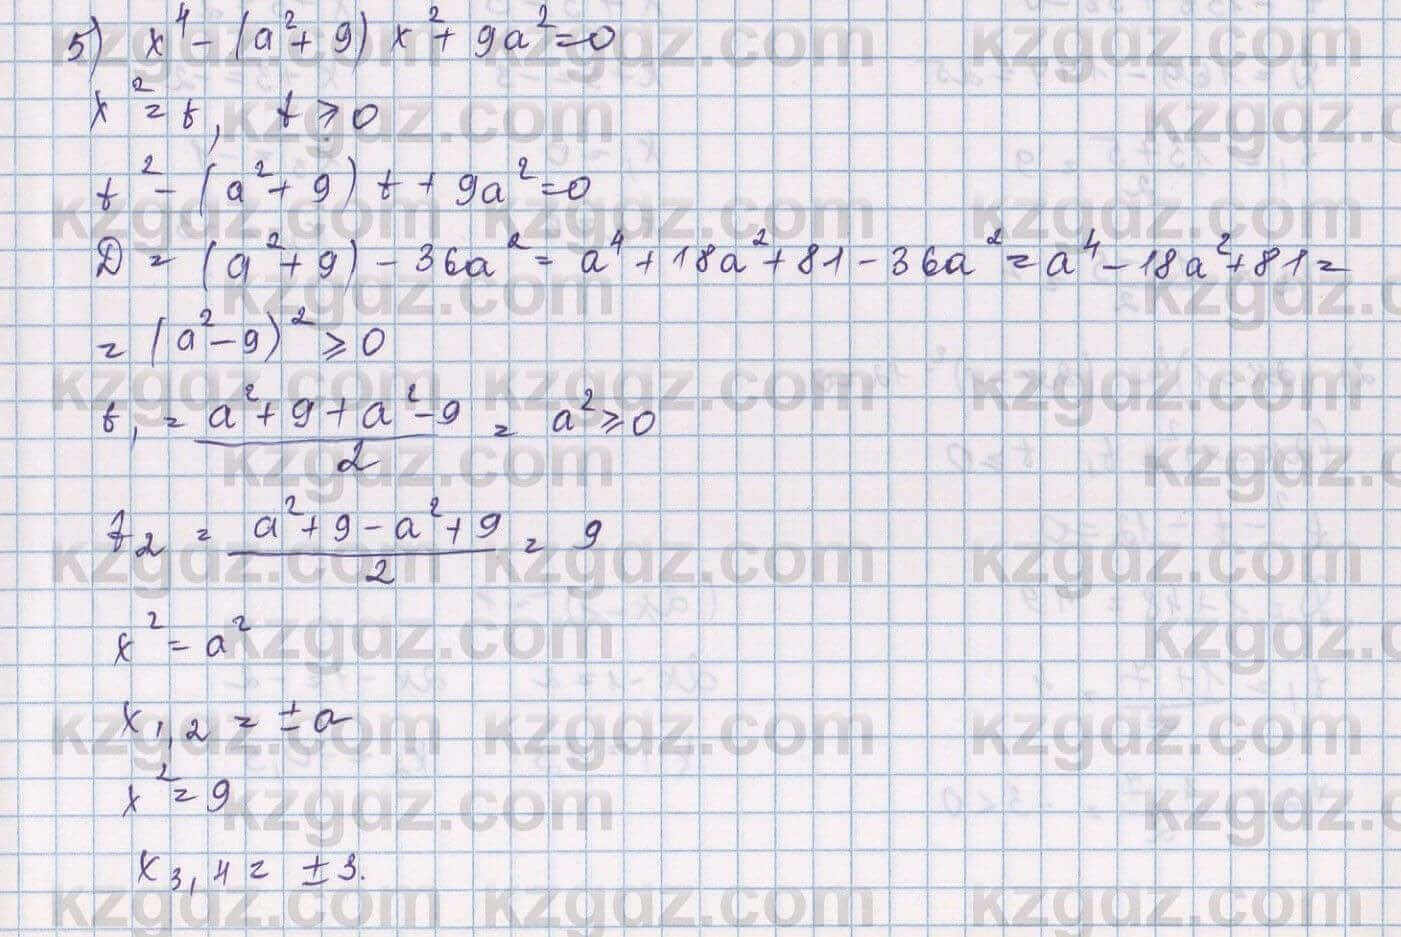 5) x⁴ - (a² + 9) x² + 9a² = 0
x² = t, t ⩾ 0
t² - (a² + 9) t + 9a² = 0
D = (a² + 9) - 36a² = a⁴ + 18a² + 81 - 36a² = a⁴ - 18a² + 81 =
= (a² - 9)² ⩾ 0
t₁ = (a² + 9 + a² - 9)/2 = a² ⩾ 0
t₂ = (a² + 9 - a² + 9)/2 = 9
x² = a²
x₁,₂ = ± a
x² = 9
x₃,₄ = ± 3.
kzgdz.com